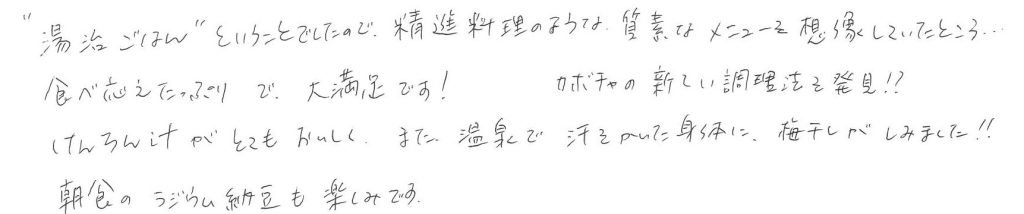 "湯治ごはん"ということでしたので、精進料理のような、質素なメニューを想像していたところ…
食べ応えたっぷりで、大満足です! カボチャの新しい調理法を発見!?
けんちん汁がとてもおいしく、また、温泉で汗をかいた身体に、梅干しがしみました!!
朝食のラジウム納豆も楽しみです。